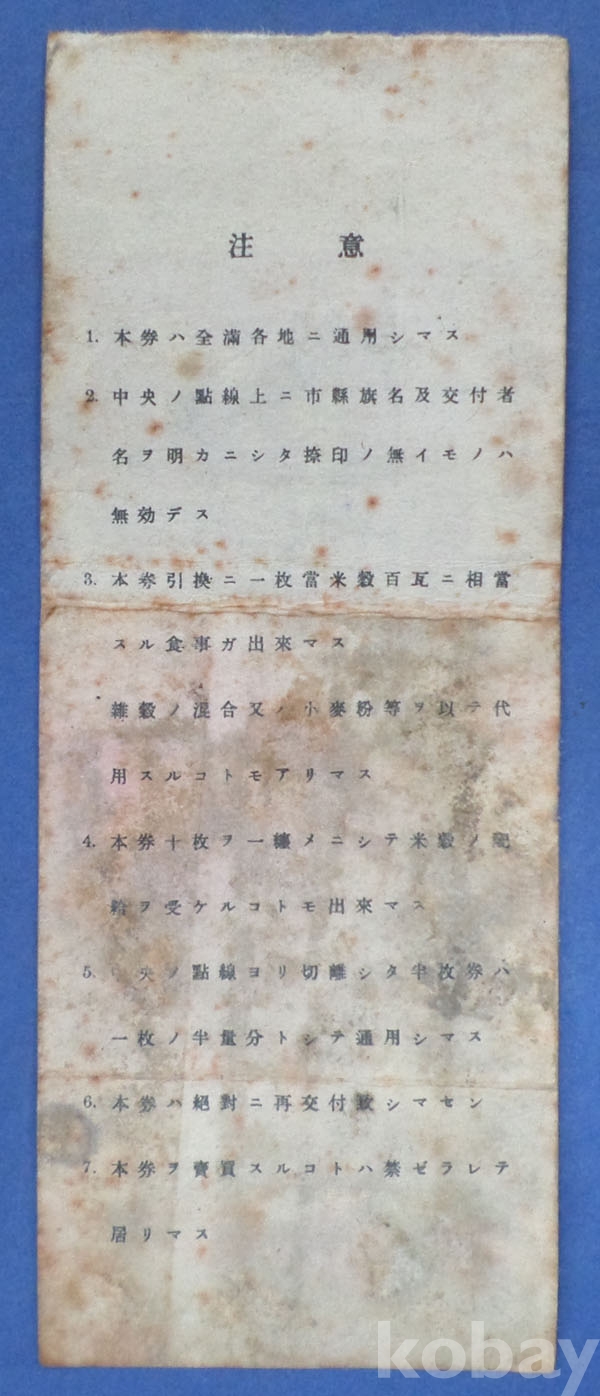 注意
1. 本券ハ全滿各地ニ通用シマス
2. 中央ノ點線上ニ市縣旗名及交付者
名ヲ明カニシタ捺印ノ無イモノハ
無効デス
3. 本券引換ニ一枚當米穀百瓦ニ相當
スル食事ガ出來マス
雜穀ノ混合又ハ小麥粉等ヲ以テ代
用スルコトモアリマス
4. 本券十枚ヲ一纏メニシテ米穀ノ配
給ヲ受ケルコトモ出來マス
5. 央ノ點線ヨリ切離シタ半枚券ハ
一枚ノ半量分トシテ通用シマス
6. 本券ハ絕對ニ再交付致シマセン
7. 本券ヲ賣買スルコトハ禁ゼラレテ
居リマス
kobay